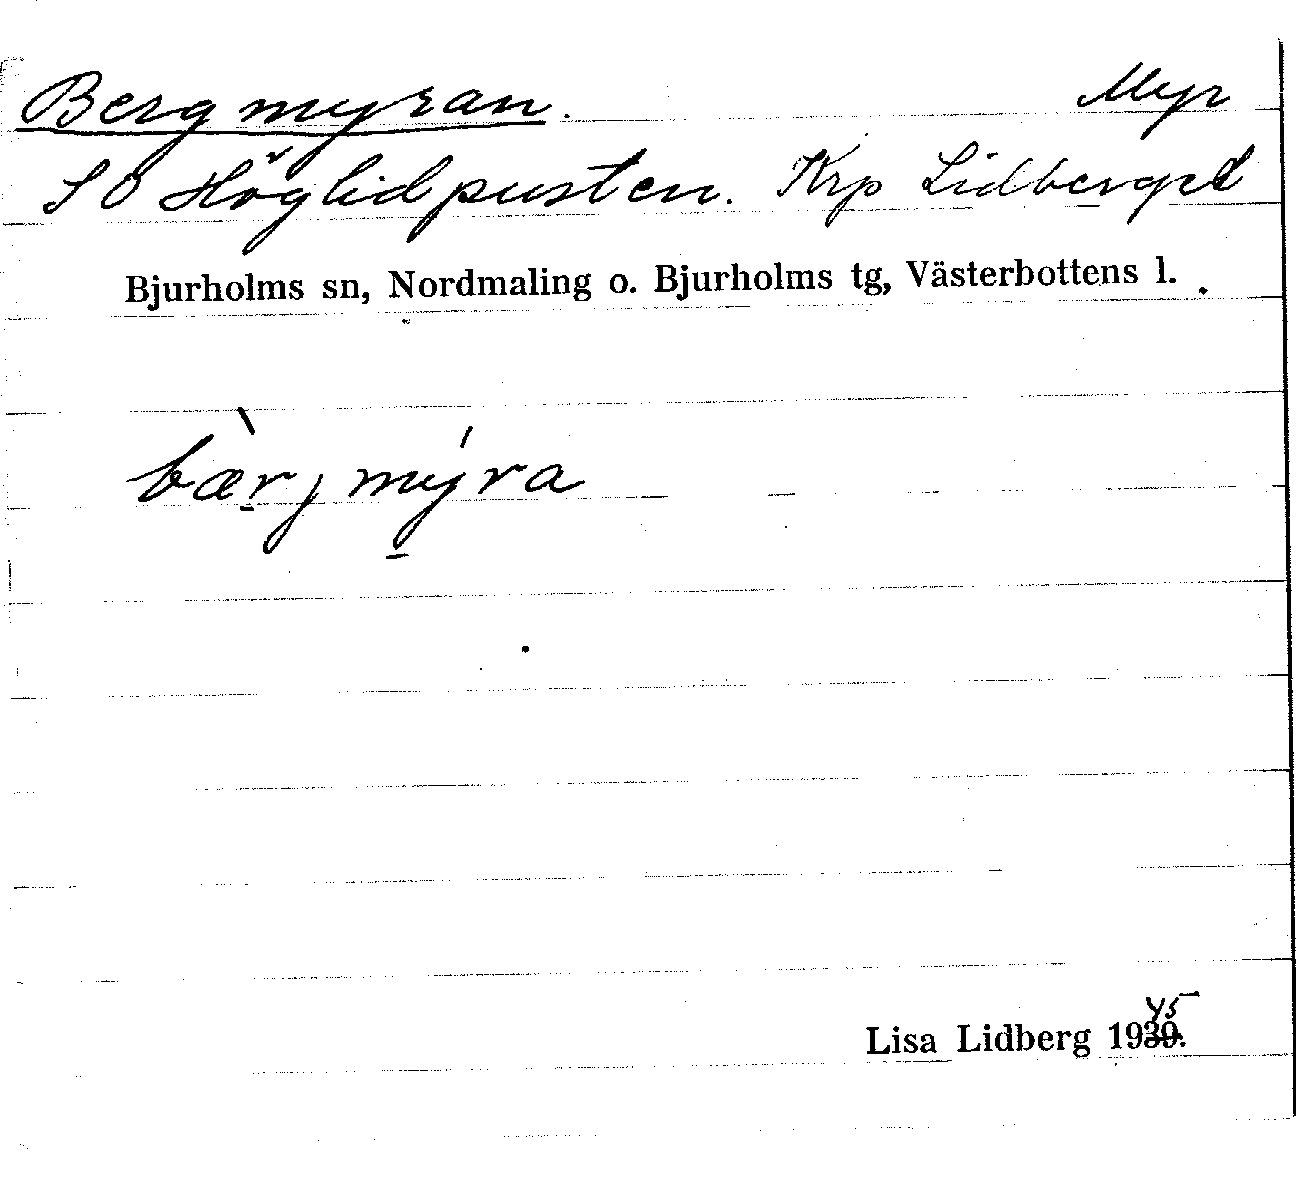 Bergmyran. Myr
SO Höglidpusten. Krp Lidberget
Bjurholms sn, Nordmaling o. Bjurholms tg, Västerbottens l.
bæ̀rjmýra
Lisa Lidberg 1939. 45